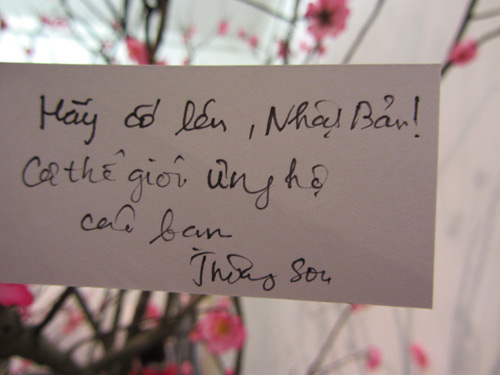 Hãy cố lên, Nhật Bản!
Cả thế giới ủng hộ
các bạn
Thắng Son